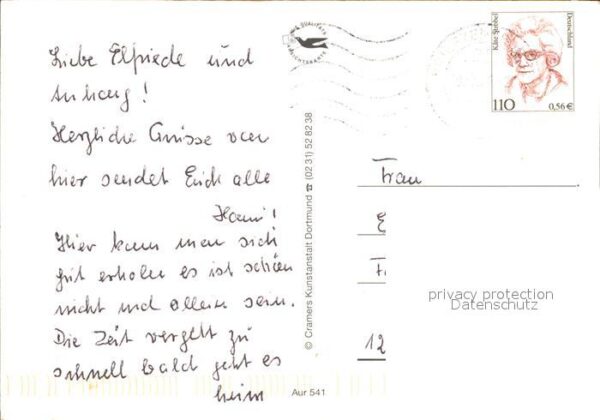 Liebe Elfriede und
Anhang!
Herzliche Grüsse von
hier sendet Euch alle
Hani!
Hier kann man sich
gut erholen es ist schön
nicht und allein sein.
Die Zeit vergeht zu
schnell bald geht es
heim
QUALITÄTS
© Cramers Kunstanstalt Dortmund ☎ (02 31) 52 82 38
Aur 541
Käte Strobel
Deutschland
110
0,56 €
Frau
E
F
privacy protection
Datenschutz
12